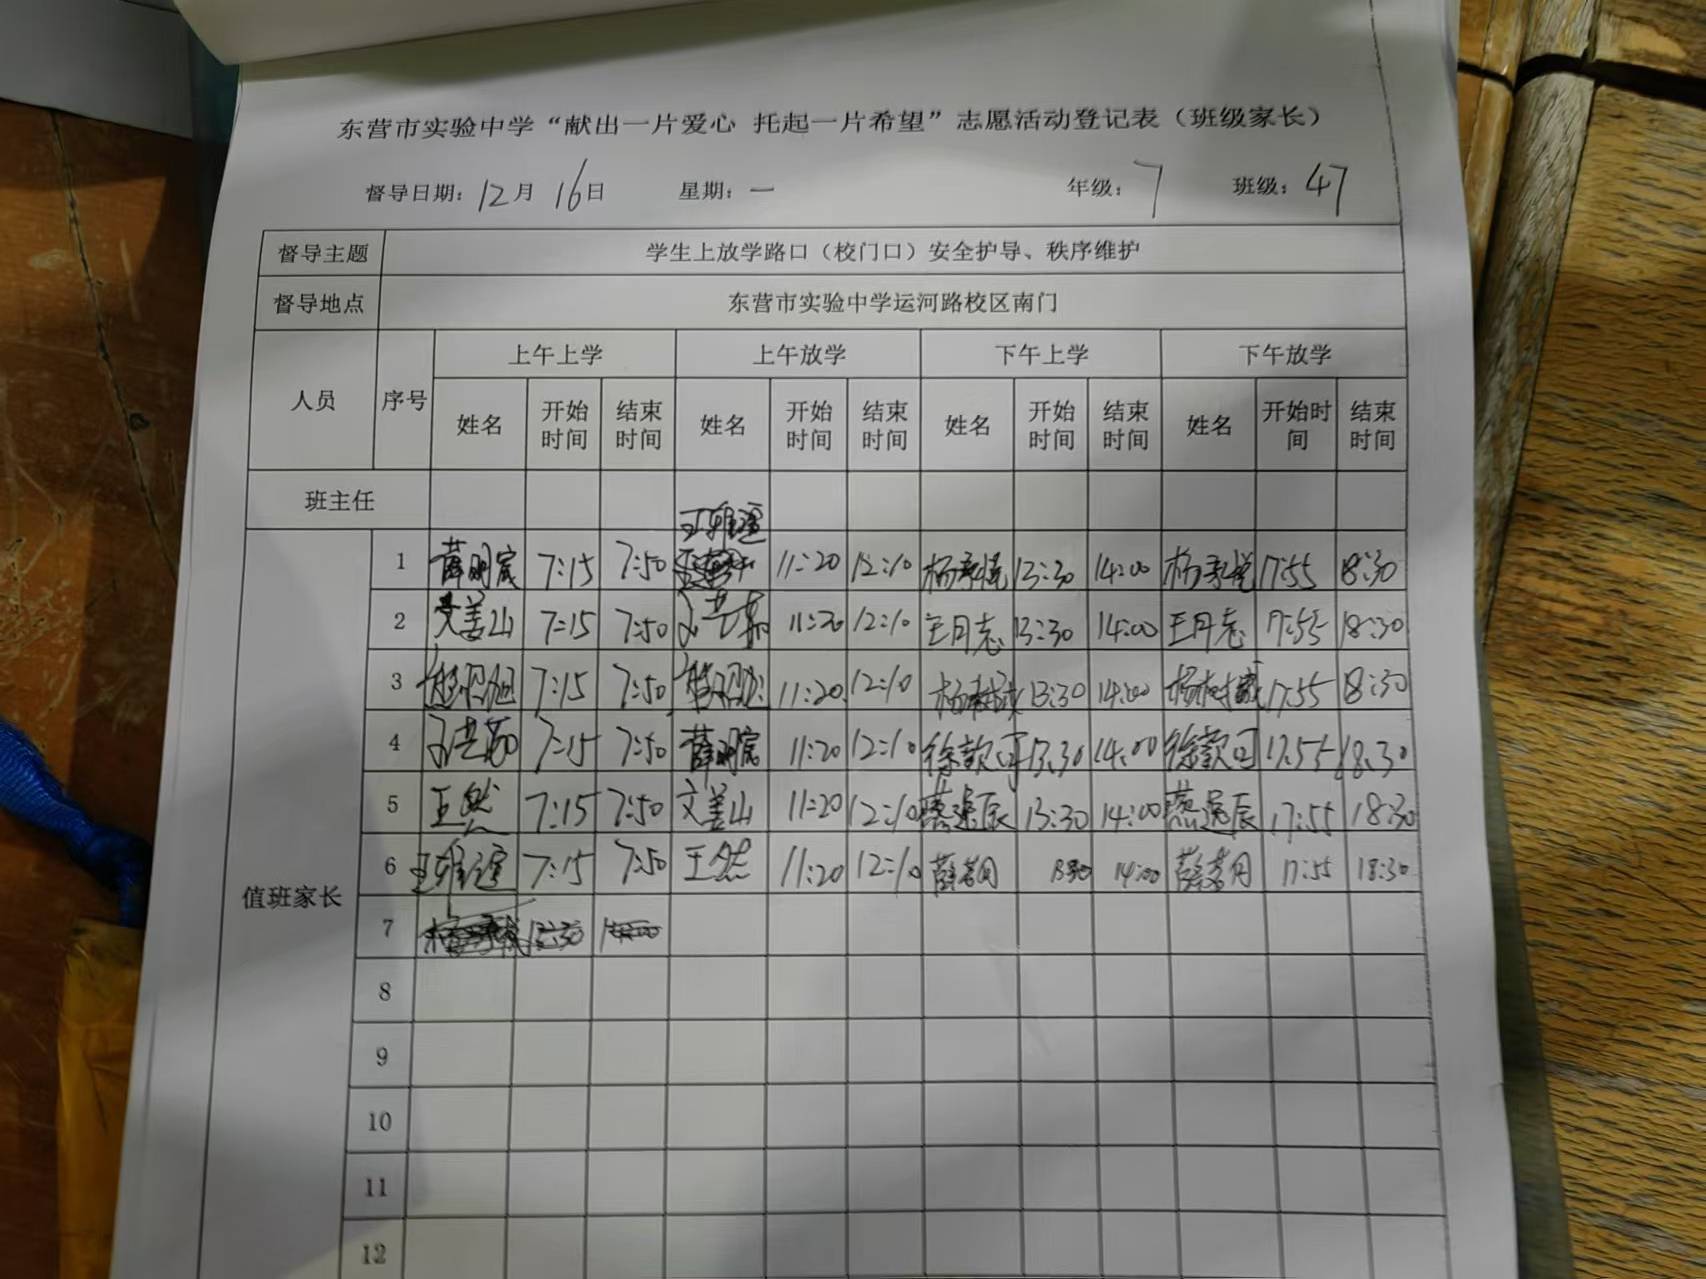 东营市实验中学“献出一片爱心 托起一片希望”志愿活动登记表（班级家长）
督导日期：12月 16日 星期：一 年级：7 班级：47
督导主题 学生上放学路口（校门口）安全护导、秩序维护
督导地点 东营市实验中学运河路校区南门
人员 序号 上午上学 上午放学 下午上学 下午放学
姓名 开始时间 结束时间 姓名 开始时间 结束时间 姓名 开始时间 结束时间 姓名 开始时间 结束时间
班主任
值班家长
1 薛明宸 7:15 7:50 王雅暄 11:20 12:10 杨承悦 13:30 14:00 杨承悦 17:55 18:30
2 文善山 7:15 7:50 11:20 12:10 王月志 13:30 14:00 王月志 17:55 18:30
3 7:15 7:50 11:20 12:10 13:30 14:00 17:55 18:30
4 7:15 7:50 薛明宸 11:20 12:10 徐歆可 13:30 14:00 徐歆可 17:55 18:30
5 王然 7:15 7:50 文善山 11:20 12:10 13:30 14:00 17:55 18:30
6 7:15 7:50 王然 11:20 12:10 14:00 17:55 18:30
7
8
9
10
11
12